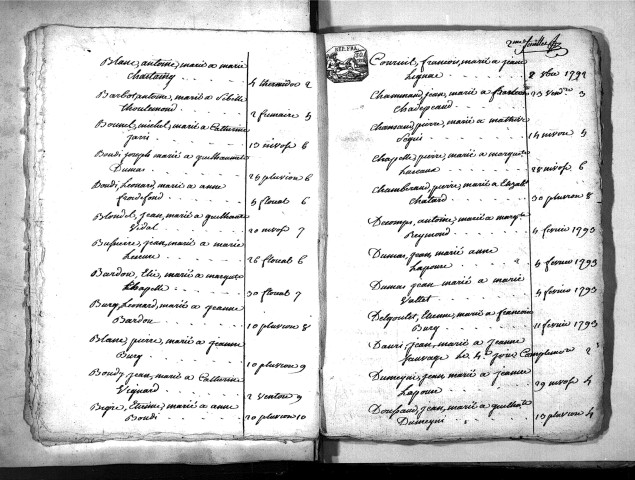 Blanc, antoine, marié a marie
Chastaing . . . 4 thermidor 2
Barbot, antoine, marié a Sibille
thoulemond . . . 2 frimaire 5
Bounel, michel, marié a Catherine
Jarri . . . 13 nivose 6
Boudi, joseph, marié a guilhaumette
Dumas . . . 24 pluviose 6
Boudi, Leonard, marié a anne
froidefond . . . 9 floreal 6
Blondel, jean, marié a guilhaumette
Vidal . . . 20 nivose 7
Bussiere, jean, marié a marie
. . . 26 floreal 6
Bardon, Elie, marié a marguerite
Chapelle . . . 30 floreal 7
Bury, Leonard, marié a jeanne
Bardou . . . 10 pluviose 8
Blanc, pierre, marié a jeanne
Bury . . . 10 pluviose 9
Boudy, jean, marié a Catherine
Vignard . . . 2 ventose 9
Begre, Etienne, marié a anne
Boudi . . . 20 pluviose 10
2me feuillet
REP. FRA.
Courreil, francois, marié a jeanne
Lignac . . . 2 9bre 1792
Chammard, jean, marié a
Chadepeaud . . . 23 vendre 3
Chansaud, pierre, marié a mathive
Seguï . . . 14 nivose 5
Chapelle, pierre, marié a margueritte
Lascaux . . . 28 nivose 6
Chambraud, pierre, marié a Elizabeth
Chatard . . . 30 pluviose 8
Decomps, antoine, marié a margte
Reymond . . . 4 fevrier 1793
Dumas, jean, marié anne
Lapouse . . . 4 fevrier 1793
Dumas jean marié a marie
Vallet . . . 4 fevrier 1793
Delgoulet, Etienne, marié a francoise
Bury . . . 11 fevrier 1793
Dauri, jean, marié a jeanne
Sauvage le 4e jour Complemre 2
Dumeyni, jean, marié a jeanne
Lapouse . . . 29 nivose 4
Doussaud, jean, marié a guilhalte
Dumeyni . . . 13 pluviose 4